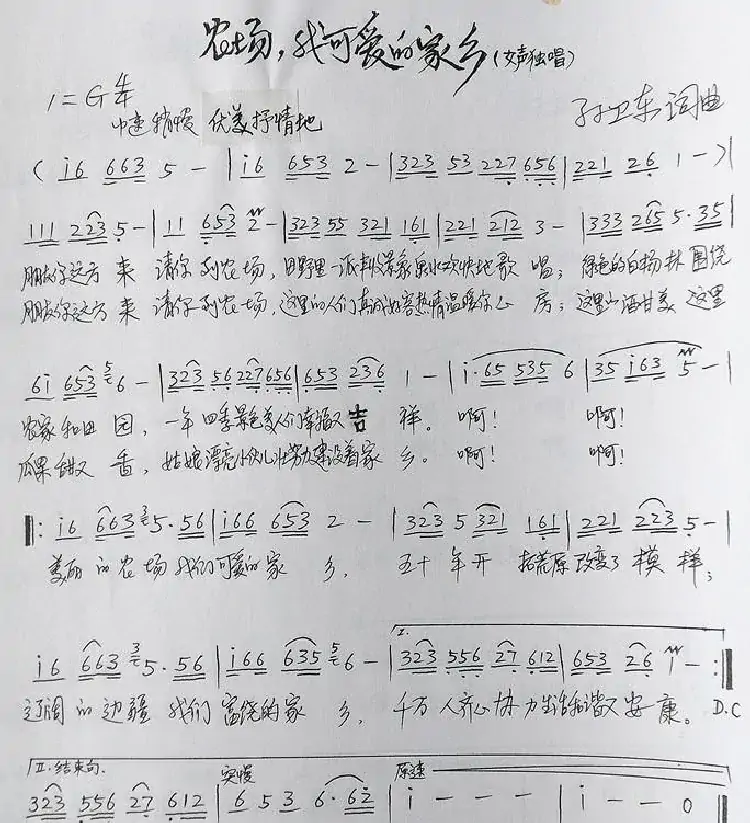 农场，我可爱的家乡(女声独唱)
1=G 4/4
孙卫东 词曲
中速稍慢 优美抒情地
( i6 663 5 - | i6 653 2 - | 323 53 227 656 | 221 26 1 - )|
111 223 5 - | 11 653 2 - | 323 55 321 161 | 221 212 3 - | 333 265 5·35 |
朋友你远方 来 请你到农场，田野里一派 景象 欢快地歌 唱； 绿色的白杨林 围绕
朋友你远方 来 请你到农场，这里的人们真诚好客热情温暖你心 房； 这里的酒甘美 这里
6i 653 6 - | 323 56 227 656 | 653 236 1 - | i·65 535 6 | 35 i63 5 - |
农家和田 园， 一年四季景色美人们幸福又吉 祥。 啊！ 啊！
瓜果甜又 香， 姑娘漂亮小伙儿 努力建设着家 乡。 啊！ 啊！
‖: i6 663 5·56 | i66 653 2 - | 323 5 321 161 | 221 223 5 - |
美丽的农场 我们可爱的家 乡， 五十年开 拓荒原改变了模 样；
i6 663 5·56 | i66 635 6 - | 323 556 27 612 | 653 26 i - :‖
辽阔的边疆 我们富饶的家 乡， 千万人齐心协力生活和谐又安 康。 D.C
Ⅱ.结束句. 突慢 原速
323 556 27 612 | 6 5 3 6·62 | i - - - | i - - 0 ‖